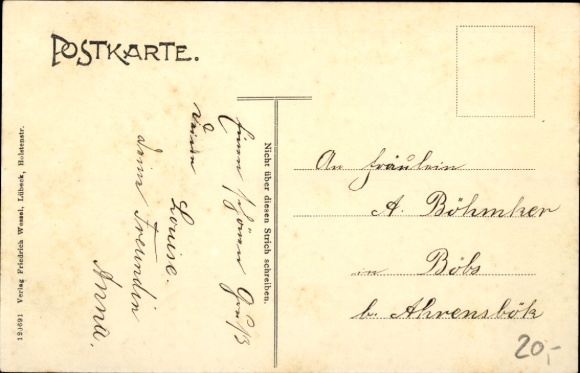 POSTKARTE.
12/691 Verlag Friedrich Wessel, Lübeck, Holstenstr.
Einen schönen Gruß
Louise.
deine Freundin
Anna.
Nicht über diesen Strich schreiben.
An Fräulein
A. Böhmker
in Böbs
b. Ahrensbök
20,-